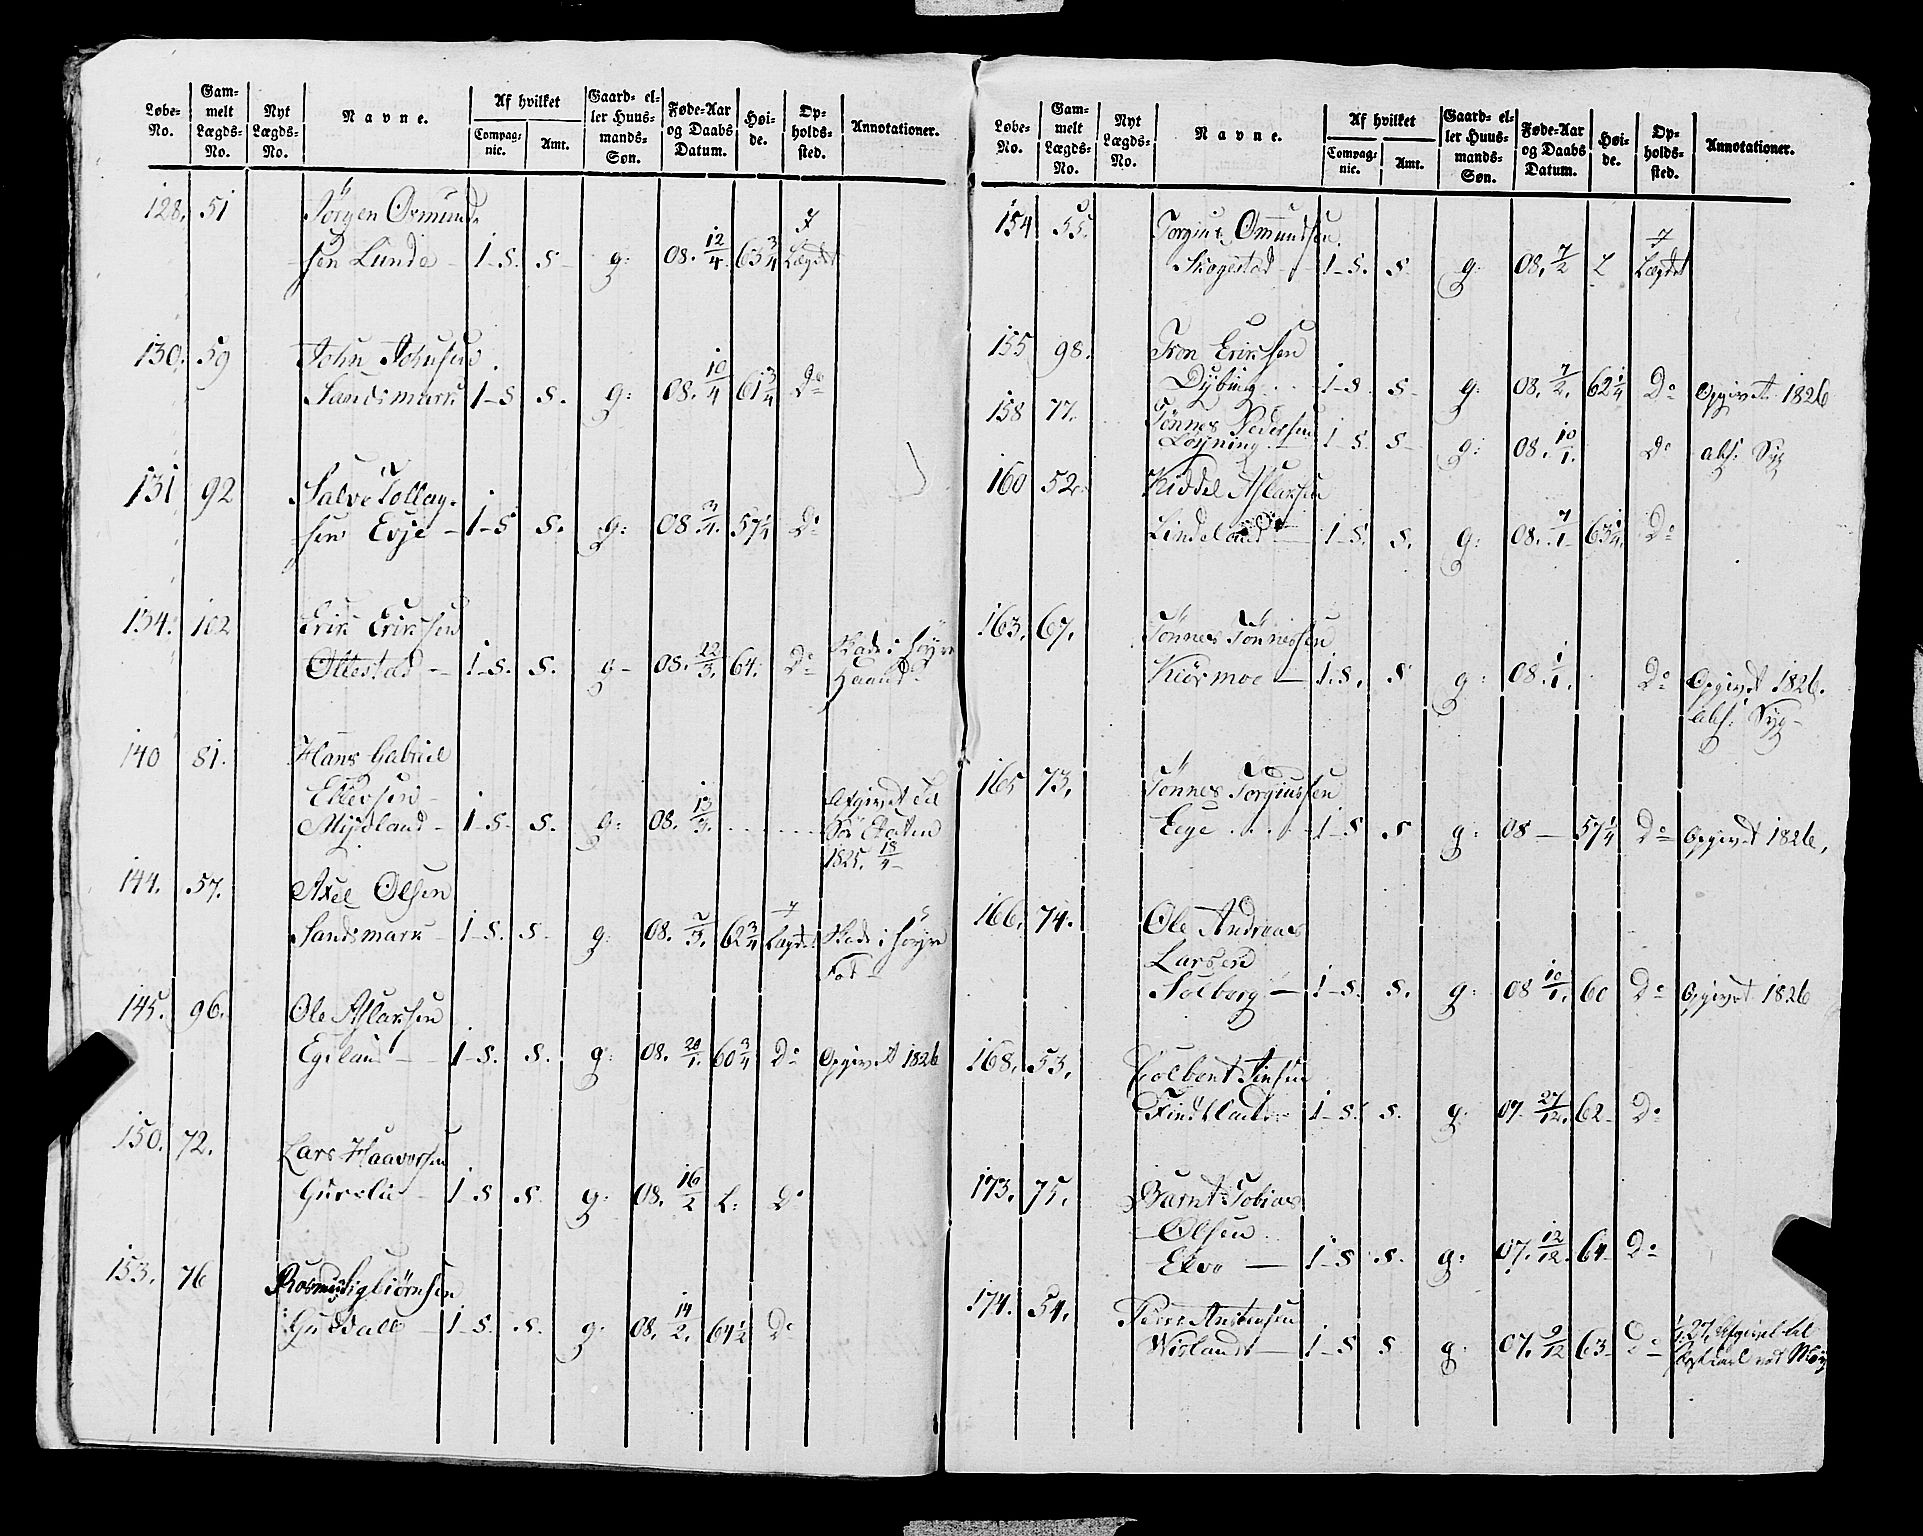 Løbe-No. Gammelt Lægds-No. Nyt Lægds-No. Navne. Af hvilket Compagnie. Amt. Gaard- eller Huusmands-Søn. Føde-Aar og Daabs Datum. Høide. Opholdssted. Annotationer.
128. 51 Jörgen Osmund-
sen Lunde – 1–S. S – g: 08. 12/4 63 3/4 J Lægdet
130. 59 John Johnsen
Sandsmark 1–S S. g: 08. 10/4 61 3/4 Do
131 92 Salve Tollag-
sen Evje – 1–S S. g: 08 3/4. 57 1/4 Do
134. 102 Erik Eriksen
Ollestad – 1–S. S. g – 08. 12/3. 64. Do Skade i höyre
Haand
140 81. Hans Gabriel
Ellevsen
Mydland – 1–S. S. g: 08. 13/3. Afgivet til
Söe Etaten
1825. 18/4
144. 57. Axel Olsen
Sandsmark – 1–S. S. g: 08. 2/3. 62 3/4 J Lægdet Skade i höyre
Fod
145. 96. Ole Aslaksen
Egeland – 1–S. S. g: 08. 20/1. 60 3/4 Do Opgivet 1826
150. 72. Lars Haavorsen
Gursli – 1–S S. g: 08. 16/2 L: Do
153. 76 Rasmus Sigbiörnsen
Guddall – 1–S. S. g: 08. 14/2. 64 1/2 Do
Løbe-No. Gammelt Lægds-No. Nyt Lægds-No. Navne. Af hvilket Compagnie. Amt. Gaard- eller Huusmands-Søn. Føde-Aar og Daabs Datum. Høide. Opholdssted. Annotationer.
154 55. Torgius Omundsen
Skogestad – 1–S. S. g: 08. 7/2 L J Lægdet
155 98. Tron Eriksen
Dybing – 1–S. S – g: 08. 7/2. 62 1/4 Do Opgivet 1826
158 77. Tönnes Pedersen
Løyning – 1–S. S – g: 08. 10/1. Do abs: Syg
160 52. Kiddel Aslaksen
Lindeland – 1–S. S. g: 08. 7/1 63 1/4. Do
163. 67. Tönnes Tönnessen
Kiörmoe – 1.S. S g: 08. 1/1. Do Opgivet 1826.
abs: Syg –
165 73. Tönnes Torgiussen
Eege – 1–S S g: 08 – 57 1/4 Do Opgivet 1826.
166. 74. Ole Andreas
Larsen
Solberg – 1–S. S. g: 08 10/1. 60 Do Opgivet 1826
168. 53. Tolbent
Findtland – 1–S. S. g: 07. 27/12. 62 – Do
173. 75. Barnt Tobias
Olsen
Eeve – 1–S S. g: 07. 12/12. 64 – Do
174. 54. Peder Anstensen
Wisland – 1–S S g: 07. 9/12 63 – Do 27. Afgivet til